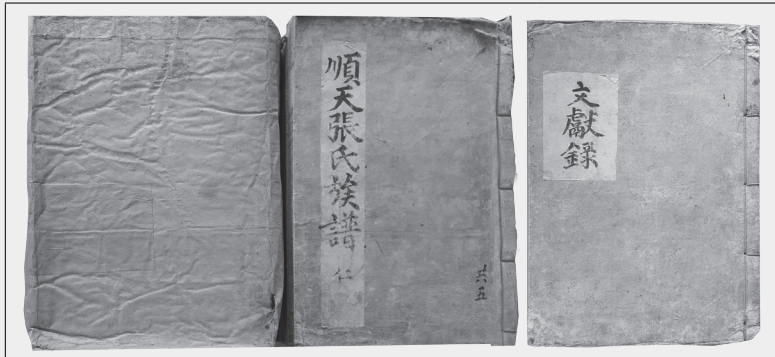 順天張氏族譜 仁
共五
文獻錄